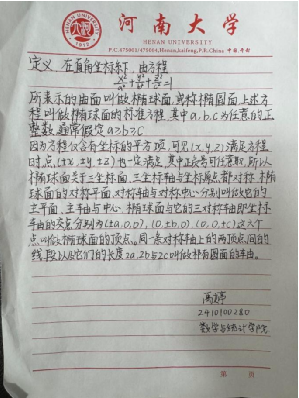 河南大学
HENAN UNIVERSITY
P.C.475001/475004,Henan,kaifeng,P.R.China 中国.开封
定义 在直角坐标系下 由方程
x²/a²+y²/b²+z²/c²=1
所表示的曲面叫做椭球面,或称椭圆面,上述方
程叫做椭球面的标准方程,其中a.b.c为任意的正
整数,通常假定a≥b≥c
因为方程仅含有坐标的平方项,可见(x,y,z)满足方程
时,点(±x,±y,±z)也一定满足,其中正负号可任意取,所以
椭球面关于三坐标面,三坐标轴与坐标原点都对称,椭
球面的对称平面,对称轴与对称中心分别叫做它的
主平面,主轴与中心,椭球面与它的三对称轴即坐标
轴的交点分别为(±a,0,0),(0,±b,0),(0,0,±c)这六个
点叫做椭球面的顶点.同一条对称轴上的两顶点间的
线段以及它们的长度2a.2b与2c叫做椭圆面的主轴.
2410100280
数学与统计学院
第 页